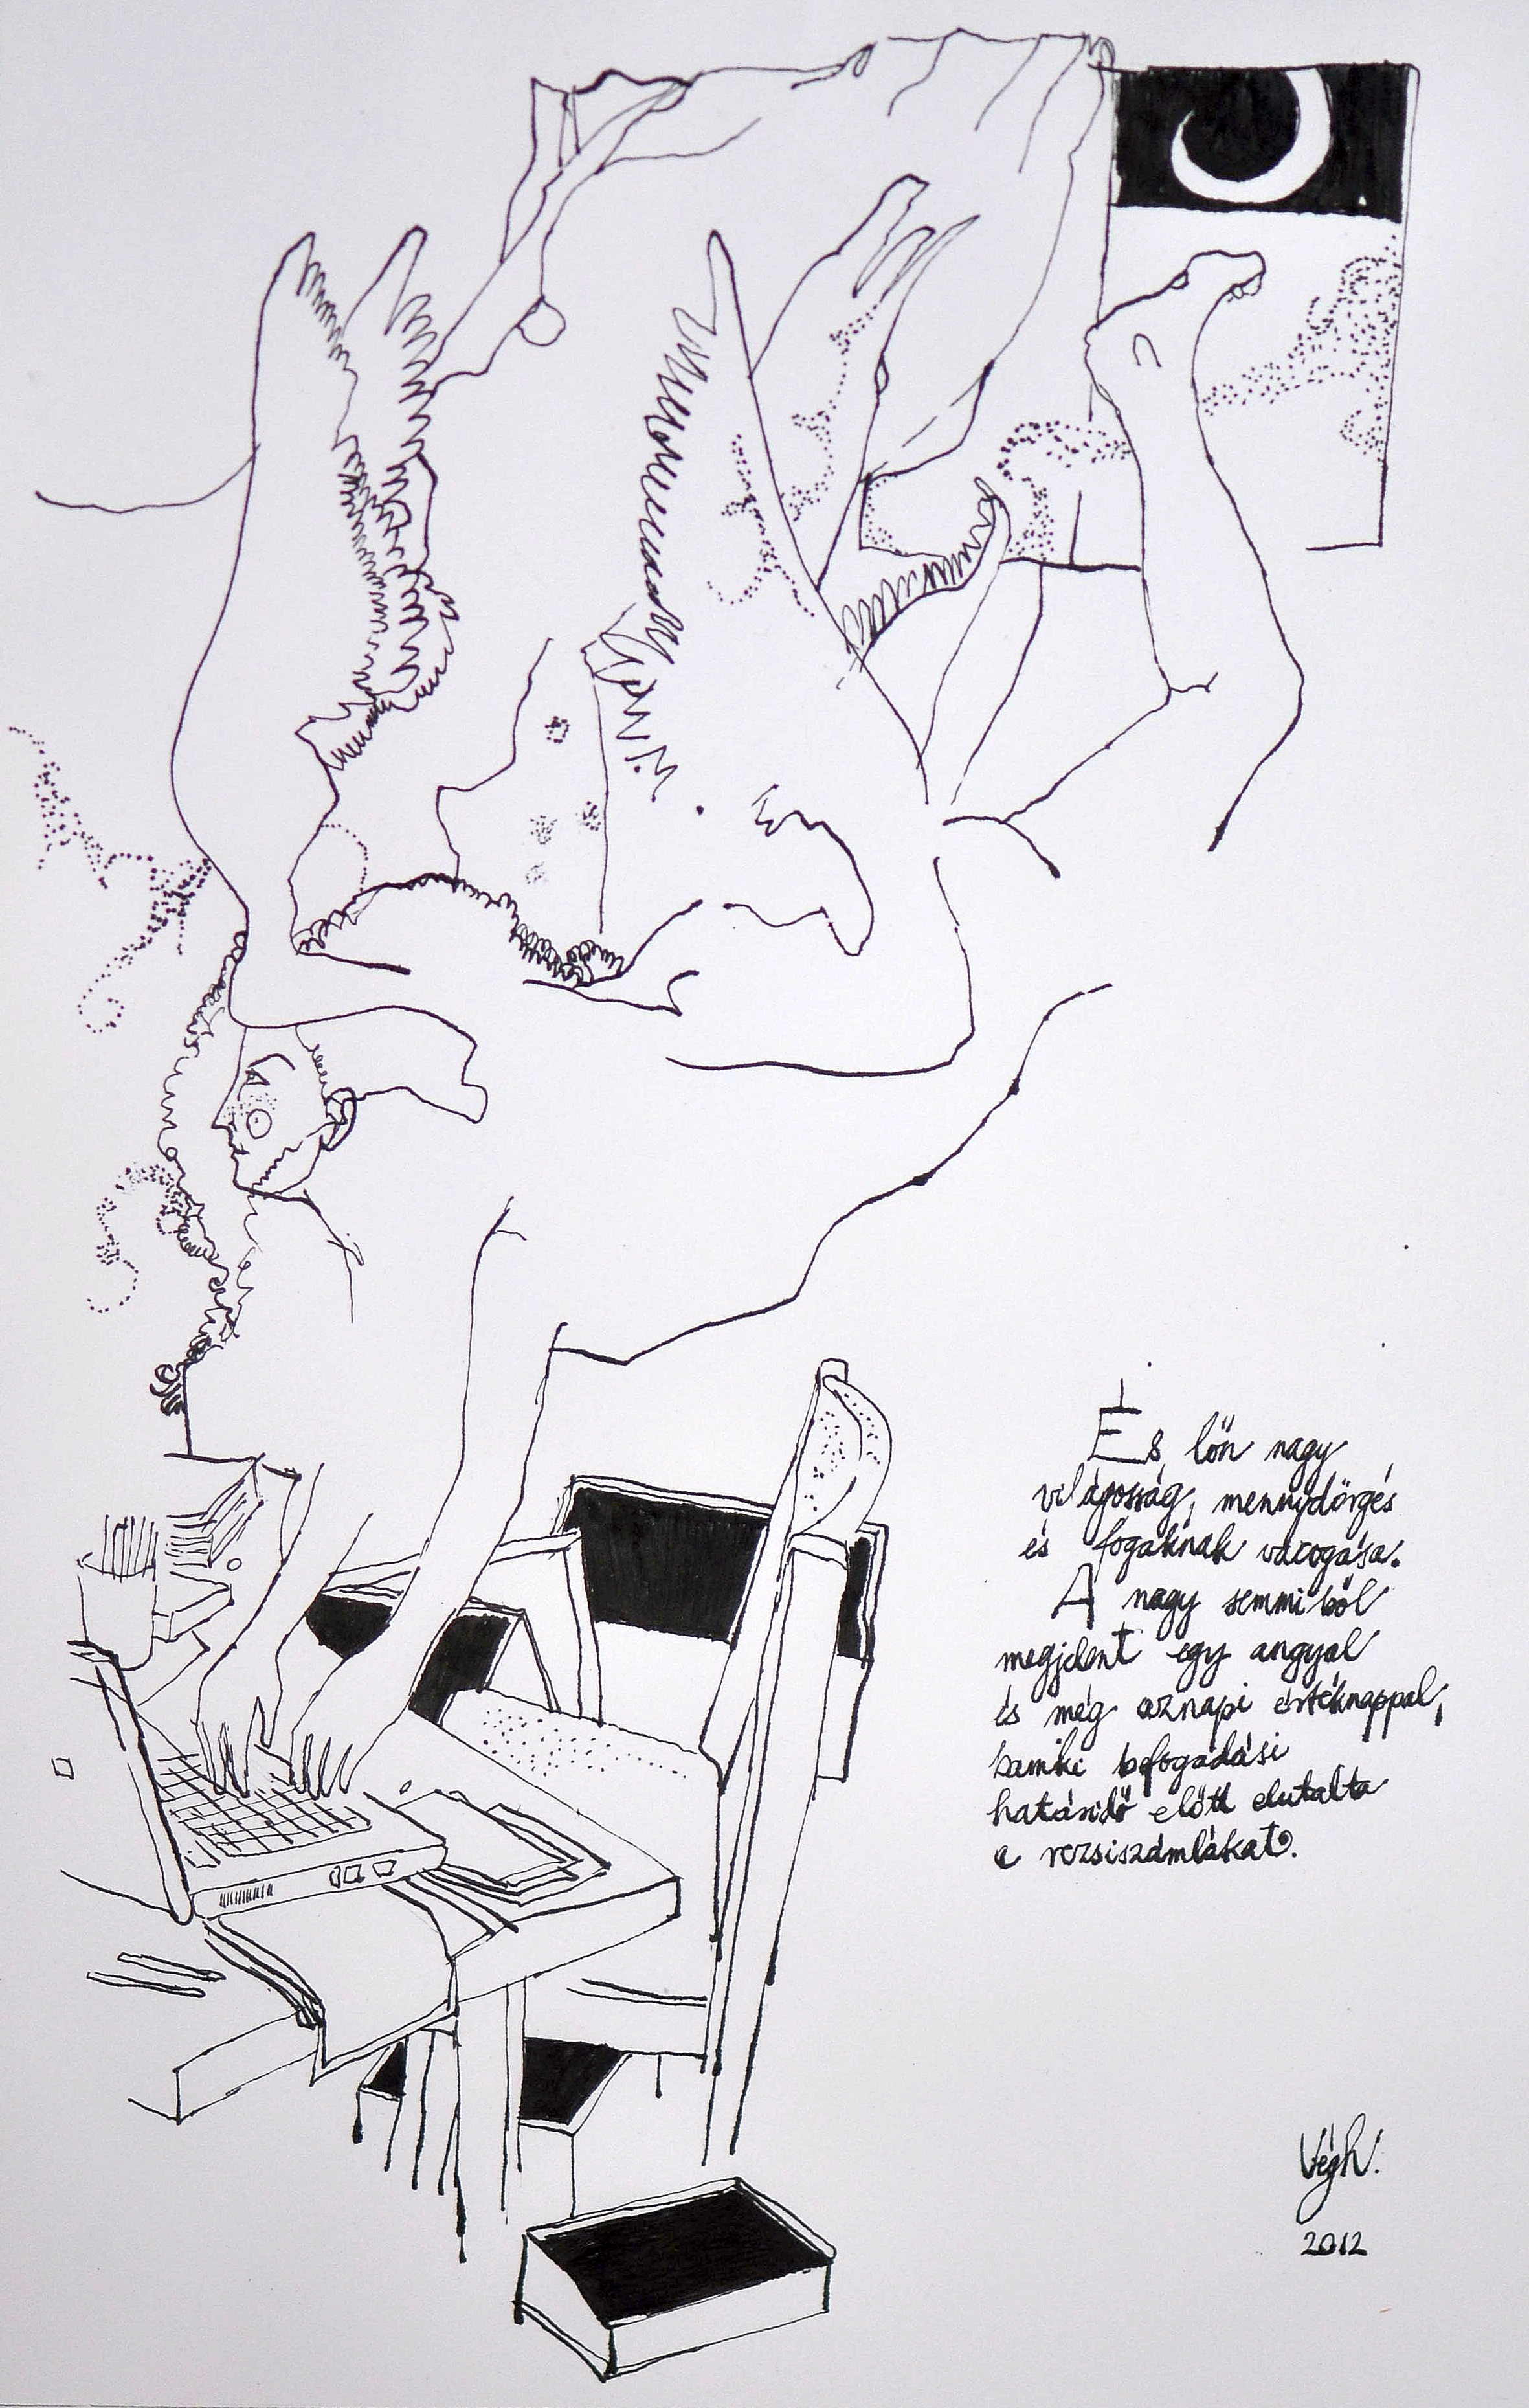 És lőn nagy
világosság, mennydörgés
és fogaknak vacogása.
A nagy semmiből
megjelent egy angyal
és még aznapi értéknappal,
bamiki befogadási
határidő előtt elutalta
a rezsiszámlákat.
Végh.
2012